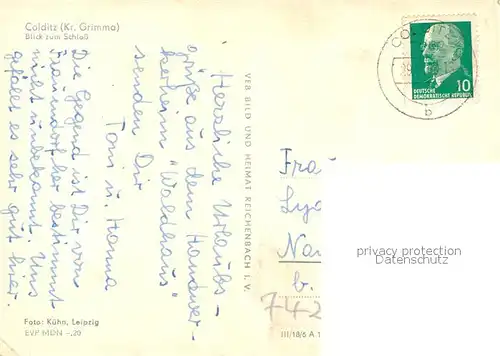 Colditz (Kr. Grimma)
Blick zum Schloß
Herzliche Urlaubs-
grüße aus dem Handwer-
kerheim "Waldhaus"
senden Dir
Toni u. Hanna
Die Gegend ist Dir von
Frauendorf her bestimmt
nicht unbekannt. Uns
gefällt es sehr gut hier.
Foto: Kühn, Leipzig
EVP MDN -,20
VEB BILD UND HEIMAT REICHENBACH I. V.
III/18/6 A 1
COLDITZ
b
DEUTSCHE
DEMOKRATISCHE REPUBLIK
10
Frau
Lyd
Nau
b.
742
privacy protection
Datenschutz